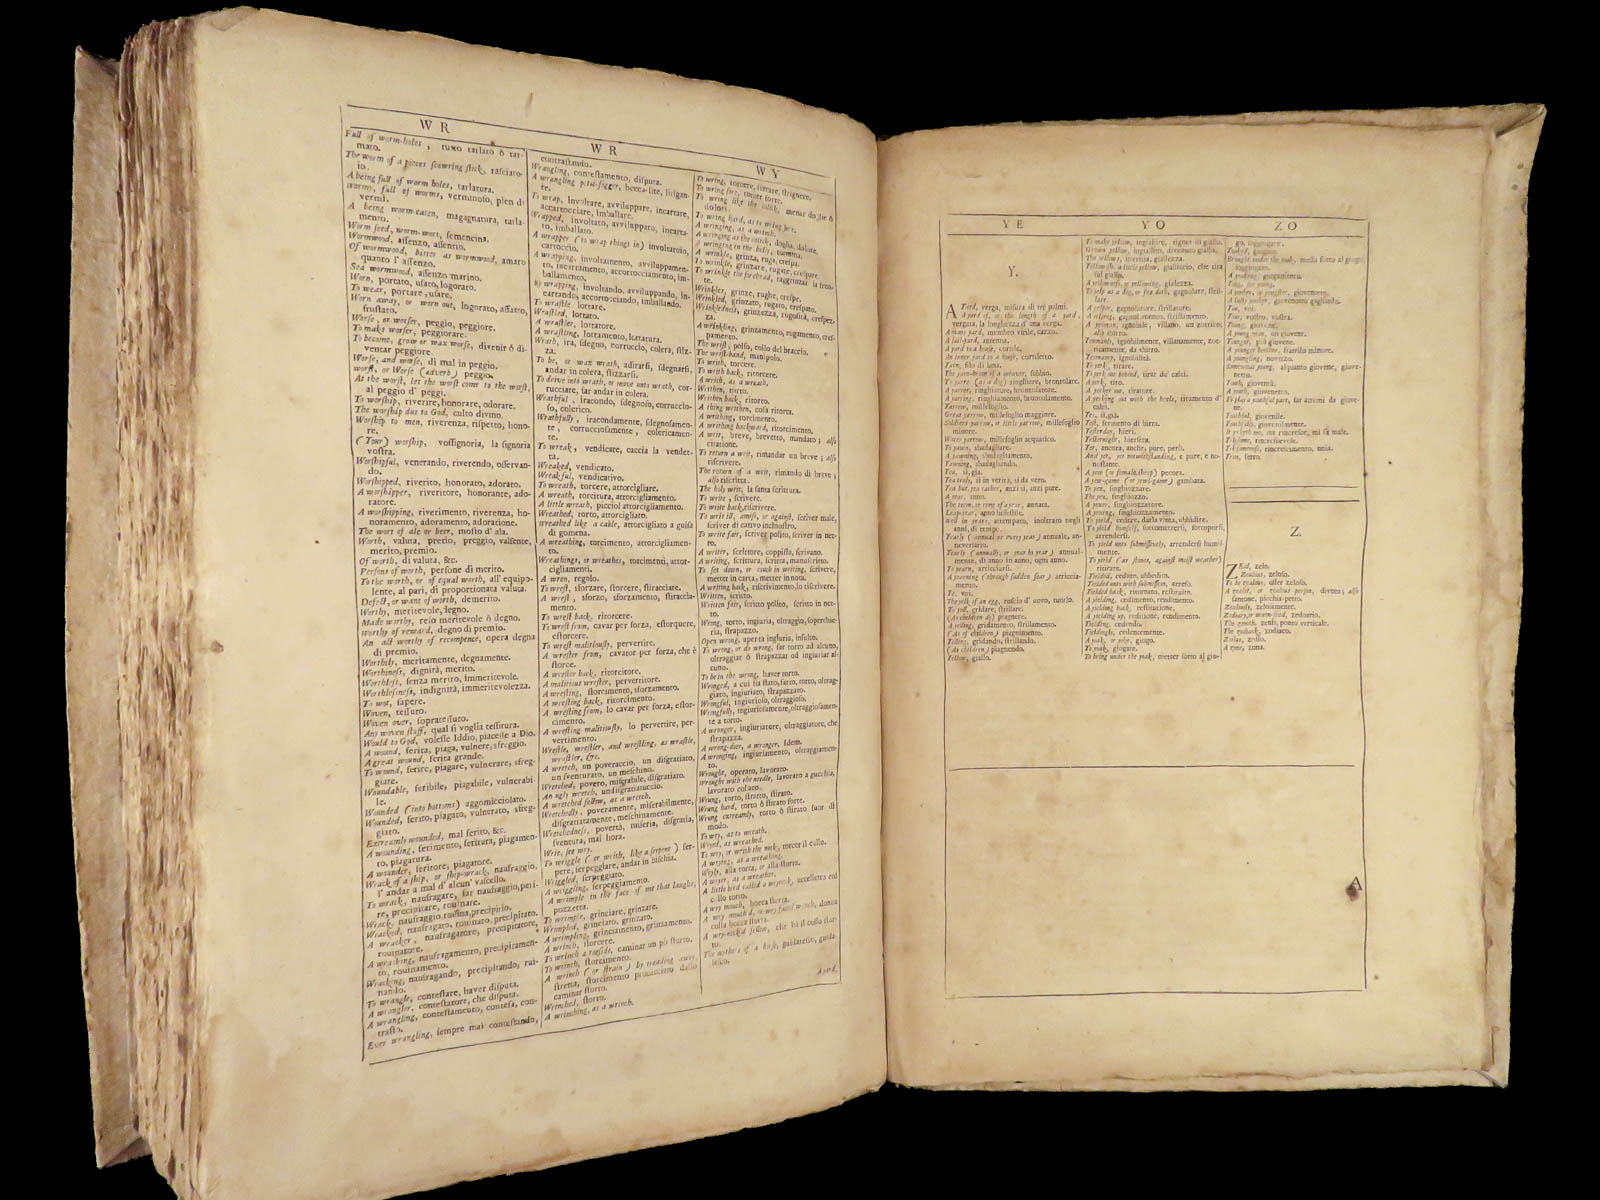 WR
Full of worm-holes, tutto tarlato ò tar-
mato.
The worm of a pieces scowring stick, rasciato-
io.
A being full of worm holes, tarlatura.
wormy, full of worms, verminoso, pien di
vermi.
A being worm-eaten, magagnatura, tarla-
mento.
Worm seed, worm-wort, semencina.
Wormwood, assenzo, assentio.
Of wormwood, bitter as wormwood, amaro
quanto l' assenzo.
Sea wormwood, assenzo marino.
Worn, portato, usato, logorato.
To wear, portare, usare.
Worn away, or worn out, logorato, affatto,
frustato.
Worse, or worser, peggio, peggiore.
To make worser, peggiorare.
To become, grow or wax worse, divenir ò di-
ventar peggiore.
Worse, and worse, di mal in peggio.
worst, or Worse (adverb) peggio.
At the worst, let the worst come to the worst,
al peggio d' peggi.
To worship, riverire, honorare, odorare.
The worship due to God, culto divino.
Worship to men, riverenza, rispetto, hono-
re.
(Your) worship, vossignoria, la signoria
vostra.
Worshipful, venerando, riverendo, osservan-
do.
Worshipped, riverito, honorato, adorato.
A worshipper, riveritore, honorante, ado-
ratore.
A worshipping, riverimento, riverenza, ho-
noramento, adoramento, adoratione.
The wort of ale or beer, mosto d' ala.
Worth, valuta, prezio, preggio, valsente,
merito, premio.
Of worth, di valuta, &c.
Persons of worth, persone di merito.
To the worth, or of equal worth, all' equipo-
lente, al pari, di proportionata valuta.
Defect, or want of worth, demerito.
Worthy, meritevole, degno.
Made worthy, reso meritevole ò degno.
Worthy of reward, degno di premio.
An act worthy of recompence, opera degna
di premio.
Worthily, meritamente, degnamente.
Worthiness, dignità, merito.
Worthless, senza merito, immeritevole.
Worthlesness, indignità, immeritevolezza.
To wot, sapere.
Woven, tessuto.
Woven over, sopratessuto.
Any woven stuff, qual si voglia tessitura.
Would to God, volesse Iddio, piacesse a Dio.
A wound, ferita, piaga, vulnere, sfreggio.
A great wound, ferita grande.
To wound, ferire, piagare, vulnerare, sfreg-
giare.
Woundable, feribile, piagabile, vulnerabi-
le.
Wounded (into bottoms) aggomicciolato.
Wounded, ferito, piagato, vulnerato, sfreg-
giato.
Extreamly wounded, mal ferito, &c.
A wounding, ferimento, feritura, piagamen-
to, piagatura.
A wounder, feritore, piagatore.
Wrack of a ship, or ship-wrack, naufraggio,
l' andar a mal d' alcun' vascello.
To wrack, naufragare, far naufraggio, peri-
re, precipitare, rouinare.
Wrack, naufraggio, rouina, precipitio.
Wracked, naufragato, rouinato, precipitato.
A wracker, naufragatore, precipitatore,
rouinatore.
A wracking, naufragamento, precipitamen-
to, rouinamento.
Wracking, naufragando, precipitando, rui-
nando.
To wrangle, contestare, haver disputa.
A wrangler, contestatore, che disputa.
A wrangling, contestamento, contesa, con-
trasto.
Ever wrangling, sempre mai contestando,
WR
contrastando.
Wrangling, contestamento, disputa.
A wrangling petti-fogger, becca-lite, litigan-
te.
To wrap, involtare, avviluppare, incartare,
accartocciare, imballare.
Wrapped, involtato, avviluppato, incarta-
to, imballato.
A wrapper (to wrap things in) involtatoio,
cartoccio.
A wrapping, involtamento, avviluppamen-
to, incartamento, accartocciamento, im-
ballamento.
By wrapping, involtando, avviluppando, in-
cartando, accartocciando, imballando.
To wrastle lottare.
Wrastled, lottato.
A wrastler, lottatore.
A wrastling, lottamento, lottatura.
Wrath, ira, sdegno, corruccio, colera, stiz-
za.
To be, or wax wrath, adirarsi, sdegnarsi,
andar in colera, stizzarsi.
To drive into wrath, or move unto wrath, cor-
rucciare, far andar in colera.
Wrathful, iracondo, sdegnoso, corruccio-
so, colerico.
Wrathfully, iracondamente, sdegnosamen-
te, corrucciosamente, colericamen-
te.
To wreak, vendicare, caccia la vendet-
ta.
Wreaked, vendicato.
Wreakful, vendicativo.
To wreath, torcere, attorcigliare.
A wreath, torcitura, attorcigliamento.
A little wreath, picciol attorcigliamento.
Wreathed, torto, attorcigliato.
Wreathed like a cable, attorcigliato a guisa
di gomena.
A wreathing, torcimento, attorcigliamen-
to.
Wreathings, or wreathes, torcimenti, attor-
cigliamenti.
A wren, regolo.
To wrest, sforzare, storcere, stiracciare.
A wrest, sforzo, sforzamento, stiraccia-
mento.
To wrest back, ritorcere.
To wrest from, cavar per forza, estorquere,
estorcere.
To wrest malitiously, pervertire.
A wrester from, cavator per forza, che è
storce.
A wrester back, ritorcitore.
A malitious wrester, pervertitore.
A wresting, storcimento, sforzamento.
A wresting back, ritorcimento.
A wresting from, lo cavar per forza, estor-
cimento.
A wresting malitiously, lo pervertire, per-
vertimento.
Wrestle, wrestler, and wrestling, as wrastle,
wrastler, &c.
A wretch, un poveraccio, un disgratiato,
un sventurato, un meschino.
Wretched, povero, misgrabile, disgratiato.
An ugly wretch, undisgratiatuccio.
A wretched fellow, as a wretch.
Wretchedly, poveramente, miserabilmente,
disgratiatamente, meschinamente.
Wretchedness, povertà, miseria, disgratia,
sventura, mal hora.
Wrie, see wry.
To wriggle (or writh, like a serpent) ser-
pere, serpeggiare, andar in bischia.
Wriggled, serpeggiato.
A wriggling, serpeggiamento.
A wrimple in the face of one that laughs,
pozzetta.
To wrimple, grinciare, grinzare.
Wrimpled, grinciato, grinzato.
A wrimpling, grinciamento, grintiamento.
A wrinch, storcere.
To wrinch a toeside, caminar un pò storto.
To wrinch, storcimento.
A wrinch (or strain) by treading awry,
stretta, storcimento procacciato dallo
caminar storto.
Wrinched, storto.
A wrinching, as a wrinch.
WY
To wring, torcere, serrare, strignere.
To wring sore, torcer forte.
To wring like the colick, menar doglie ò
dolori.
To wring hard, as to wring sore.
A wringing, as a wrinch.
A wringing as the colick, doglia, dolore.
A wringing in the belly, tormina.
A wrinkle, grinza, ruga, crespa.
To wrinkle, grinzare, rugare, crespare.
To wrinkle the forehead, raggrinzar la fron-
te.
Wrinkles, grinze, rughe, crespe.
Wrinkled, grinzato, rugato, crespato.
Wrinkledness, grinzezza, rugosità, crespez-
za.
A wrinkling, grinzamento, rugamento, cres-
pamento.
The wrist, polso, collo del braccio.
The wrist-band, manipolo.
To writh, torcere.
To writh back, ritorcere.
A writh, as a wreath.
Writhen, torto.
Writhen back, ritorto.
A thing writhen, cosa ritorta.
A writhing, torcimento.
A writhing backward, ritorcimento.
A writ, breve, brevetto, mandato; also
citatione.
To return a writ, rimandar un breve; also
riscrivere.
The return of a writ, rimando di breve;
also riscritta.
The holy writ, la santa scrittura.
To write, scrivere.
To write back, riscrivere.
To writ ill, amiss, or against, scriver male,
scriver di cativo inchiostro.
To write fair, scriver polito, scriver in net-
to.
A writer, scrittore, coppista, scrivano.
A writing, scrittura, scritta, manuscritto.
To set down, or couch in writing, scrivere,
metter in carta, metter in nota.
A writing back, riscrivimento, lo riscrivere.
Written, scritto.
Written fair, scritto polito, scritto in net-
to.
Wrong, torto, ingiuria, oltraggio, soperchie-
ria, strapazzo.
Open wrong, aperta ingiuria, insulto.
To wrong, or do wrong, far torto ad alcuno,
oltraggiar ò strapazzar od ingiuriar al-
cuno.
To be in the wrong, haver torto.
Wronged, a cui sia stato, fatto, torto, oltrag-
giato, ingiuriato, strapazzato.
Wrongful, ingiurioso, oltraggioso.
Wrongfully, ingiuriosamente, oltraggiosamen-
te a torto.
A wronger, ingiuriatore, oltraggiatore, che
strapazza.
A wrong-doer, a wronger, Idem.
A wronging, ingiuriamento, oltraggiamen-
to.
Wrought, operato, lavorato.
Wrought with the needle, lavorato a gucchia,
lavorato col aco.
Wrung, torto, stretto, stirato.
Wrung hard, torto ò stirato forte.
Wrung extreamly, torto ò stirato fuor di
modo.
To wry, as to wreath.
Wryed, as wreathed.
To wry, or writh the neck, torcer il collo.
A wrying, as a wreathing.
Wryly, alla torta, or alla storta.
A wryer, as a wreather.
A little bird called a wryneck, uccelletto col
collo torto.
A wry mouth, bocca storta.
A wry mouth'd, or wry faced wench, donna
colla bocca storta.
A wry-neck'd fellow, che hà il collo stor-
to.
The wythers of a horse, guidaresco, guida-
lesco.
A yard,
YE
Y.
A Yard, verga, misura di trè palmi.
A yard of, or the length of a yard,
vergata, la longhezza d' una verga.
A mans yard, membro virile, cazzo.
A sail-yard, antenna.
A yard to a house, cortile.
An inner yard to a house, cortiletto.
Yarn, filo di lana.
The yarn-beam of a weaver, subbio.
To yarre (as a dog) ringhiare, brontolare.
A yarrer, ringhiatore, brontolatore.
A yarring, ringhiamento, brontolamento.
Yarrow, millefoglio.
Great yarrow, millefoglio maggiore.
Soldiers yarrow, or little yarrow, millefoglio
minore.
Water yarrow, millefoglio acquatico.
To yawn, sbadagliare.
A yawning, sbadagliamento.
Yawning, sbadagliando.
Yea, sì, già.
Yea truly, sì in verità, sì da vero.
Yea but, yea rather, anzi sì, anzi pure.
A year, anno.
The term, or time of a year, annata.
Leap-year, anno bisestile.
Well in years, attempato, inoltrato negli
anni, di tempo.
Yearly (annual or every year) annuale, an-
neversario.
Yearly (annually, or year by year) annual-
mente, di anno in anno, ogni anno.
To yearn, arricciarsi.
A yearning (through sudden fear) arriccia-
mento.
Ye, voi.
The yelk of an egg, rosso d' uovo, tuorlo.
To yell, gridare, strillare.
(As children do) piagnere.
A yelling, gridamento, strillamento.
(As of children) piagnimento.
Yelling, gridando, strillando.
(As children) piagnendo.
Yellow, giallo.
YO
To make yellow, ingiallire, tigner di giallo.
Grown yellow, ingiallito, diventato giallo.
The yellows, itteritia, giallezza.
Yellowish, a little yellow, gialliccio, che tira
sul giallo.
A yellowness, or yellowing, gialezza.
To yelp as a dog, or fox doth, gagnolare, stril-
lare.
A yelper, gagnolatore, strillatore.
A yelping, gagnolamento, strillamento.
A yeoman, ignobile, villano, un zottico;
also sbirro.
Yeomanly, ignobilmente, villanamente, zot-
ticamente, da sbirro.
Yeomanry, ignobilità.
To yerk, tirare.
To yerk out behind, tirar de' calci.
A yerk, tiro.
A yerker out, tiratore.
A yerking out with the heels, tiramento d'
calci.
Yes, sì, già.
Yest, fermento di birra.
Yesterday, hieri.
Yesternight, hiersera.
Yet, ancora, anche, pure, però.
And yet, yet notwithstanding, e pure, e no-
nostante.
A yew (or female sheep) pecora.
A yew-game (or yewl-game) gambara.
To yex, singhiozzare.
The yex, singhiozzo.
A yexer, singhiozzatore.
A yexing, singhiozzamento.
To yield, cedere, darla vinta, ubbidire.
To yield himself, sottomettersi, sottoporsi,
arrendersi.
To yield unto submissively, arrendersi humil-
mente.
To yield (as stones, against moist weather)
ritirare.
Yielded, ceduto, ubbedito.
Yielded unto with submission, arreso.
Yielded back, ritornato, restituito.
A yielding, cedimento, rendimento.
A yielding back, restitutione.
A yielding up, restitutione, rendimento.
Yielding, cedendo.
Yieldingly, cedentemente.
A yoak, or yoke, giogo.
To yoak, giogare.
To being under the yoak, metter sotto al gio-
ZO
go, soggiogare.
Yoaked, giogato.
Brought under the yoak, messo sotto al giogo,
soggiogato.
A yoaking, giogamento.
A yonker, or youngster, giovenotto.
A lusty yonker, giovenotto gagliardo.
You, voi.
Your, vostro, vostra.
Young, giovene.
A young man, un giovene.
Younger, più giovene.
A younger brother, fratello minore.
A youngling, novizzo.
Somewhat young, alquanto giovene, giove-
netto.
Youth, gioventù.
A youth, giovenetto.
To play a youthful part, far attioni da giove-
ne.
Youthful, giovenile.
Youthfully, giovenilmente.
It yrketh me, mi rincresce, mi sà male.
Yrksome, rincrescevole.
Yrksomeness, rincrescimento, noia.
Yron, ferro.
Z.
ZEal, zelo.
Zealous, zeloso.
To be zealous, esser zeloso.
A zealot, or zealous person, divoto; also
santone, picchia-petto.
Zealously, zelosamente.
Zedoary, or worm-seed, zedoario.
The zenith, zenit, ponto verticale.
The zodiack, zodiaco.
A zone, zona.
A